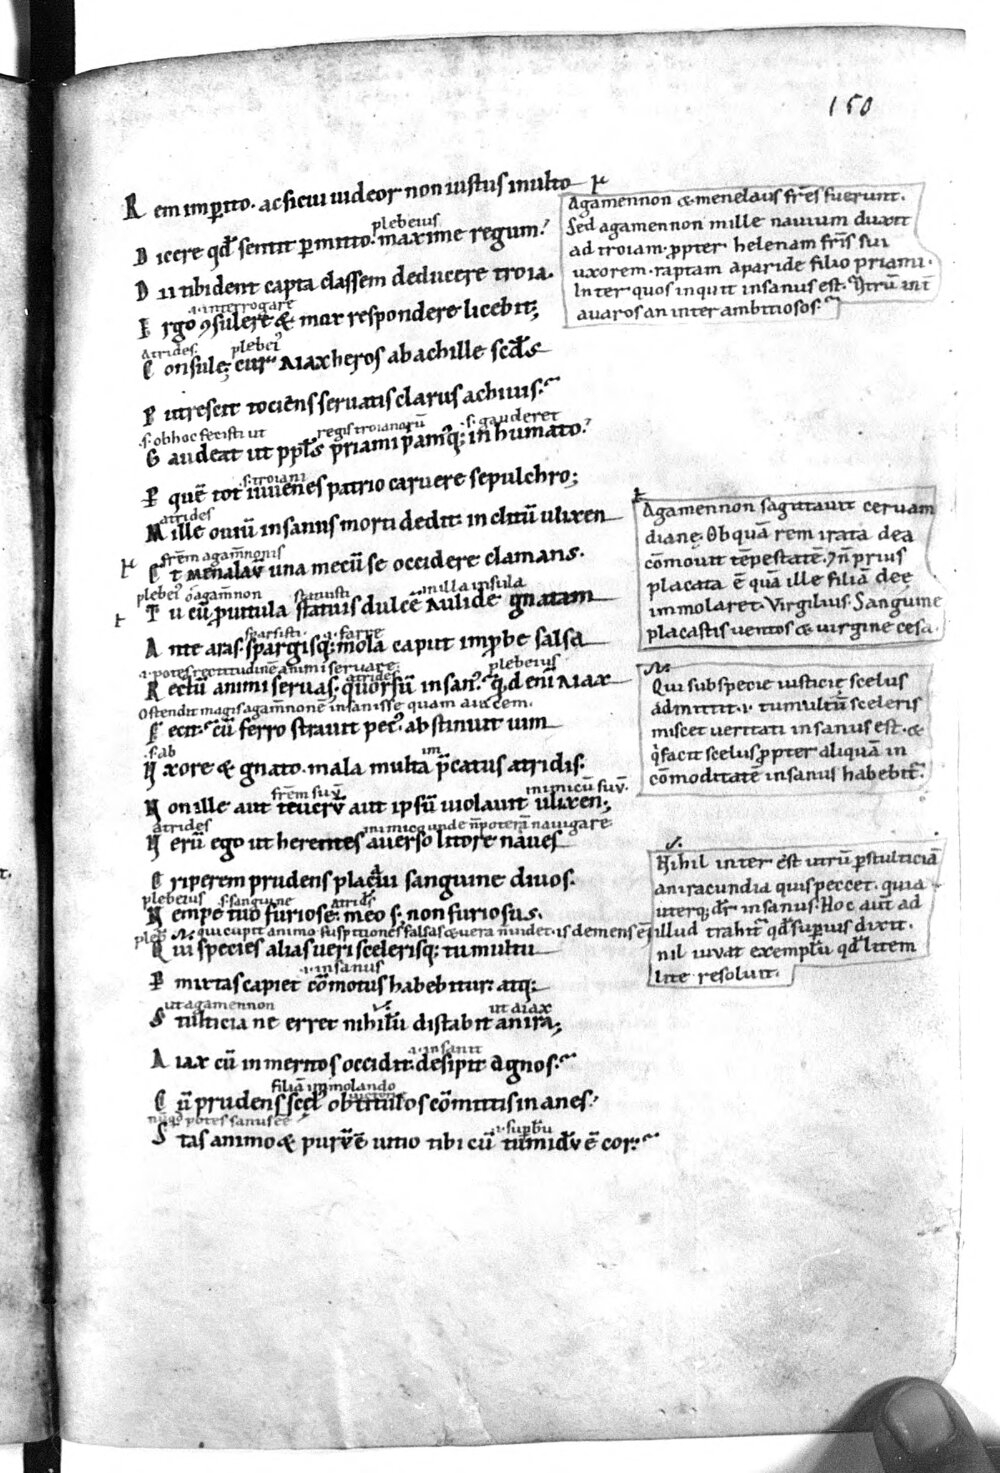 150
Rem imꝑito. ac si cui uideor non iustus inulto
Agamennon & menelaus fr̄es fuerunt.
Sed agamennon mille nauium duxit
ad troiam. ꝓpter helenam fr̄is sui
uxorem. raptam a paride filio priami.
Inter quos inquit insanus est. Vtrū int̄
auaros an inter ambitiosos.
plebeius
Dicere qd̄ sentit ꝑmitto. maxime regum.
Dii tibi dent capta classem deducere troia.
.i. interrogare
Ergo ꝯsulere & mox respondere licebit;
Atrides. plebei᷒
Consule; cur aiax heros ab achille scd̄s
Putrescit tociens seruatis clarus achiuis.
.s. ob hoc fecisti ut regis troianorū .s. gauderet
Gaudeat ut ppl̄s priami priamꝰq; inhumato.
.s. troiani
Per quē tot iuuenes patrio caruere sepulchro;
atrides
Mille ouiū insanus morti dedit. inclitū ulixen
frēm agam̄nonis
Et menalaū una mecū se occidere clamans.
Agamennon sagittauit ceruam
dianę. Ob quā rem irata dea
cōmouit tēpestatē. & n̄ prius
placata ē quā ille filiā deę
immolaret. Virgilius. Sanguine
placastis uentos & uirgine cesa.
plebei᷒ o agam̄non statuisti in illa insula
Tu cū ꝓ uitula statuis dulcē aulide gnatam
sparsisti .i. farre
Ante aras. spargisq; mola caput improbe salsa
.i. potes rectitudinē animi seruare. atrides plebeius
Rectū animi seruas. quorsū insan᷒. qd eni aiax
Ostendit magis agam̄nonē insanisse quam aiacem.
Fecit. cū ferro strauit pec᷒. abstinuit uim
Qui sub specie iusticię scelus
admittit .i. tumultū sceleris
miscet ueritati insanus est. &
q̇ facit scelus ꝓpter aliquā in
cōmoditatē insanus habebit᷒.
.s. ab im
Vxore & gnato. mala multa p̄catus atridis.
frēm suū inimicū suū.
Non ille aut teucrū aut ipsū uiolauit ulixen;
atrides inimico unde n̄ poterā nauigare
Verū ego ut herentes auerso litore naues
Eriperem prudens placaui sanguine diuos.
plebeius .s. sanguine Atrid̄s
Nempe tuo furiose. meo s. non furiosus.
Nihil inter est utrū ꝑ stulticiā
an iracundia quis peccet. quia
uterq; dr̄ insanus. Hoc aut̄ ad
illud trahit᷒ qd̄ superius dixit.
nil iuuat exemplū qd̄ litem
lite resoluit.
qui cupit animo suspitiones falsas & uera n̄ uidet. is demens ē
Qui species alias ueri scelerisq; tumultu
.i. insanus
Permixtas capiet cōmotus habebitur. atq;
ut agamennon ut aiax
Stulticia ne erret nihilū distabit an ira;
.i. insanit
Aiax cū inmeritos occidit. desipit agnos.
filiā immolando
Cū prudens scel᷒ ob titulos cōmittis inanes.
nūqd potes sanus eē .i. suꝑbū
Stas animo & purū ē uitio tibi cū tumidū ē cor.